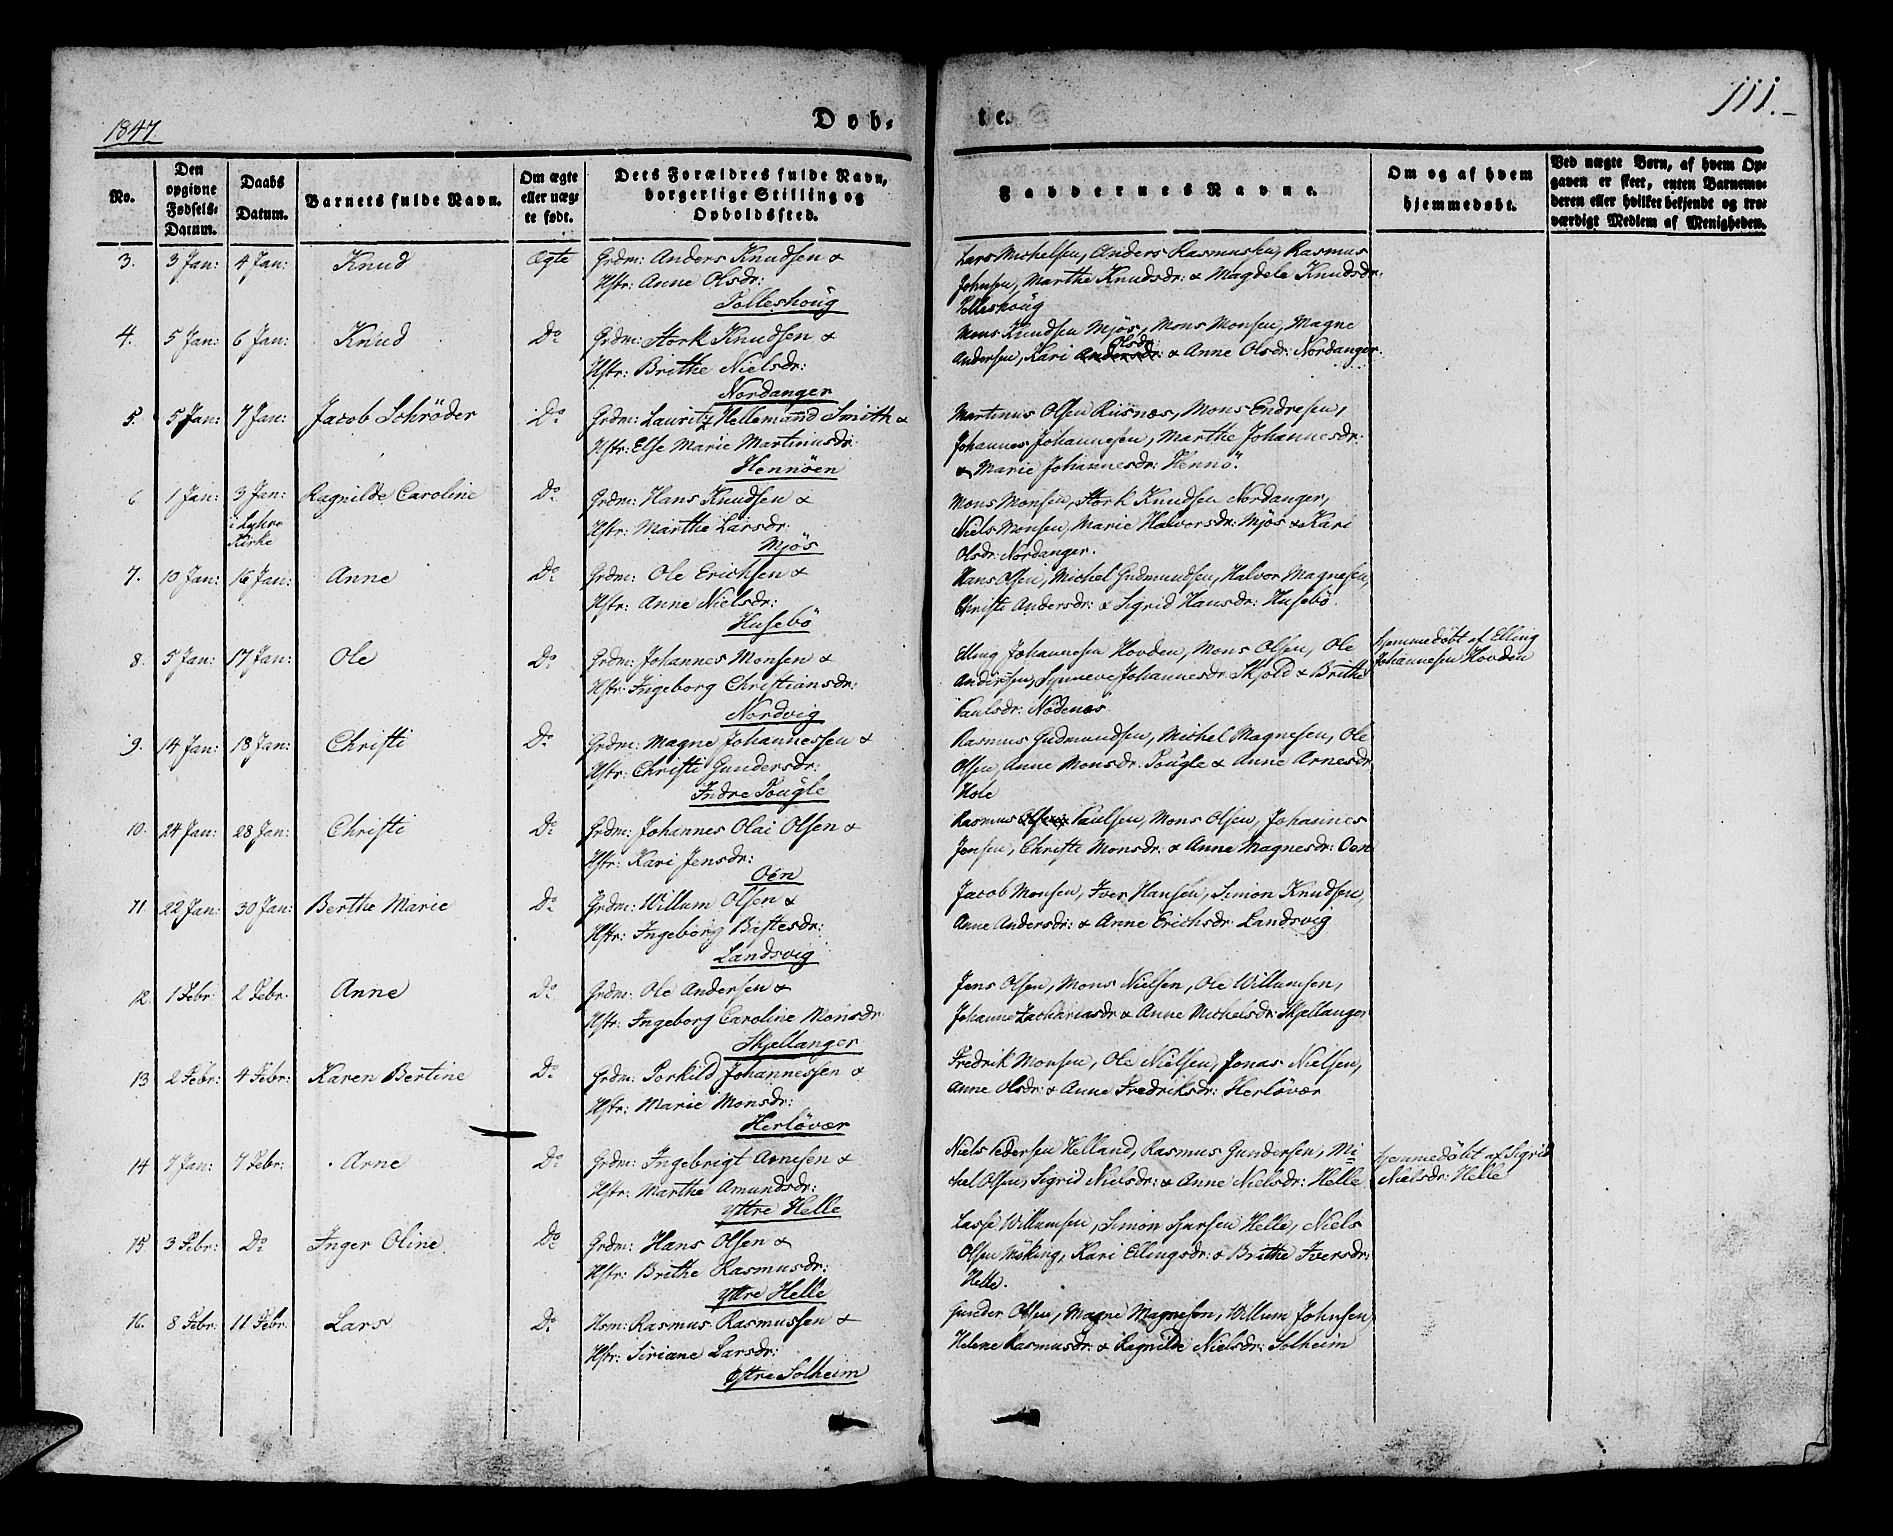 1847.
Døb-
te.
111.
No.
Den opgivne Fødsels-Datum.
Daabs Datum.
Barnets fulde Navn.
Om ægte eller uægte født.
Dets Forældres fulde Navn, borgerlige Stilling og Opholdssted.
Faddernes Navne.
Om og af hvem hjemmedøbt.
Ved uægte Børn, af hvem Opgaven er skeet, enten Barnemoderen eller hvilket bekjendt og troværdigt Medlem af Menigheden.
3. 3 Jan: 4 Jan: Knud Ægte Grdm: Anders Knudsen &
Hstr: Anne Olsdr:
Tolleshoug
Lars Michelsen, Anders Rasmussen, Rasmus
Johnsen, Marthe Knudsdr: & Magdele Knudsdr:
Tolleshoug
4. 5 Jan: 6 Jan: Knud Do Grdm: Stork Knudsen &
Hstr: Brithe Nielsdr:
Nordanger
Mons Knudsen Mjös, Mons Monsen, Magne
Olsdr:
Andersen, Kari Andersdr: & Anne Olsdr: Nordanger.
5. 5 Jan: 7 Jan: Jacob Schrøder Do Grdm: Lauritz Hellemund Smith &
Hstr: Else Marie Martinusdr:
Hennöen
Martinus Olsen Risnæs, Mons Endresen,
Johannes Johannesen, Marthe Johannesdr:
& Marie Johannesdr: Hennö.
6 1 Jan: 3 Jan: Ragnilde Caroline Do Grdm: Hans Knudsen &
i Lykre
Kirke
Hstr: Marthe Larsdr:
Mjös
Mons Monsen, Stork Knudsen Nordanger,
Niels Monsen, Marie Halvorsdr: Mjös & Kari
Olsdr: Nordanger.
7. 10 Jan: 16 Jan: Anne Do Grdm: Ole Erichsen &
Hstr: Anne Nielsdr:
Husebö
Hans Olsen, Michel Gudmundsen, Halvor Magnesen,
Christi Andersdr: & Sigrid Hansdr: Husebö.
8. 5 Jan: 17 Jan: Ole Do Grdm: Johannes Monsen &
Hstr: Ingeborg Christiansdr:
Nordvig
Elling Johannesen Hovden, Mons Olsen, Ole
Andersen, Synneve Johannesdr: Skjold & Brithe
Paulsdr: Nödenes
Hjemmedöbt af Elling
Johannesen Hovden
9. 14 Jan: 18 Jan: Christi Do Grdm: Magne Johannessen &
Hstr: Christi Gundersdr:
Indre Tougle
Rasmus Gudmundsen, Michel Magnesen, Ole
Olsen, Anne Monsdr: Tougle & Anne Arnesdr
Hole
10. 24 Jan: 28 Jan: Christi Do Grdm: Johannes Olai Olsen &
Hstr: Kari Jensdr:
Oen
Rasmus Olsen Paulsen, Mons Olsen, Johannes
Jensen, Christi Monsdr: & Anne Magnesdr: Oen
11 22 Jan: 30 Jan: Berthe Marie Do Grdm: Willum Olsen &
Hstr: Ingeborg Bastesdr:
Landsvig
Jacob Monsen, Iver Hansen, Simon Knudsen,
Anne Andersdr: & Anne Erichsdr: Landsvig
12. 1 Febr: 2 Febr: Anne Do Grdm: Ole Andersen &
Hstr: Ingeborg Caroline Monsdr:
Skjellanger
Jens Olsen, Mons Nielsen, Ole Willumsen,
Johanne Zachariasdr: & Anne Michelsdr: Skjellanger
13 2 Febr: 4 Febr: Karen Bertine Do Grdm: Torkild Johannessen &
Hstr: Marie Monsdr:
Herlövær
Fredrik Monsen, Ole Nielsen, Jonas Nielsen,
Anne Olsdr: & Anne Fredriksdr: Herlövær
14 7 Jan: 7 Febr: Arne Do Grdm: Ingebrigt Arnesen &
Hstr: Marthe Amundsdr:
Yttre Helle
Niels Pedersen Helland, Rasmus Gundersen, Mi=
chel Olsen, Sigrid Nielsdr: & Anne Nielsdr: Helle
Hjemmedöbt af Sigrid
Nielsdr: Helle
15 3 Febr: Do Inger Oline Do Grdm: Hans Olsen &
Hstr: Brithe Rasmusdr:
Yttre Helle
Lasse Willumsen, Simon Helle, Niels
Olsen Möking, Kari Ellingsdr: & Brithe Iversdr:
Helle.
16. 8 Febr: 11 Febr: Lars Do Hsm: Rasmus Rasmussen &
Hstr: Siriane Larsdr:
Östre Solheim
Gunder Olsen, Magne Magneson, Willum Johnsen,
Helene Rasmusdr: & Ragnilde Nielsdr: Solheim